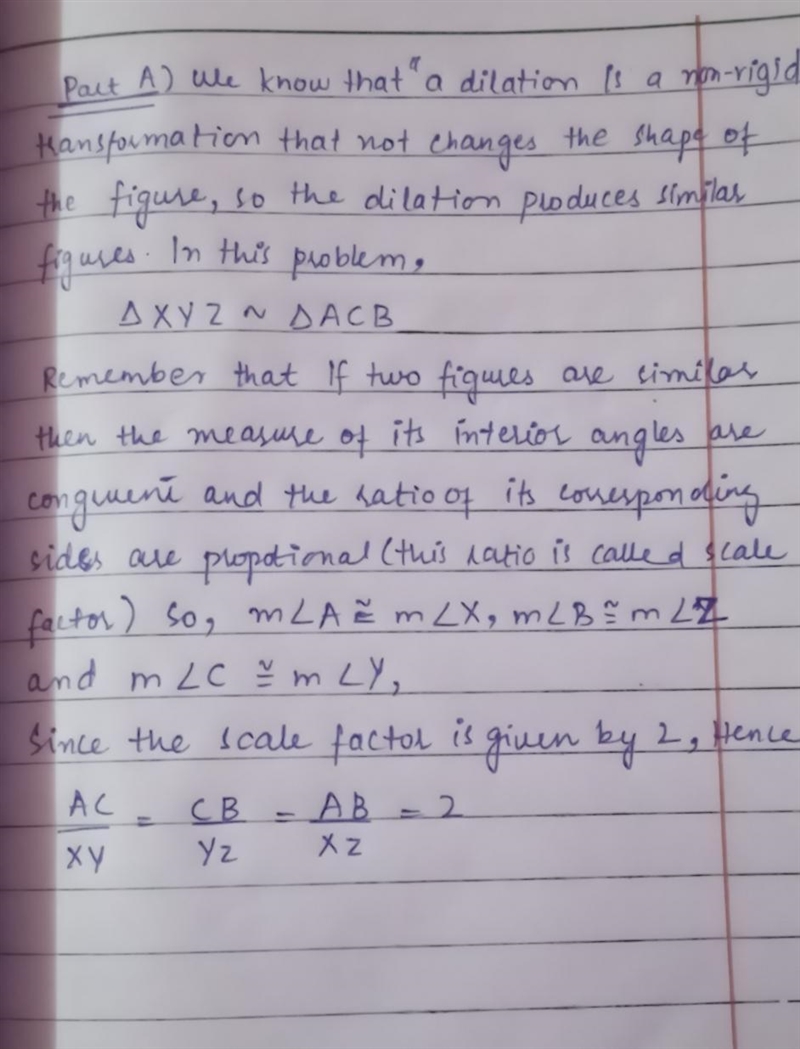 Part A) We know that "a dilation is a non-rigid
transformation that not changes the shape of
the figure, so the dilation produces similar
figures. In this problem,
Δ XYZ ~ ΔACB
Remember that if two figures are similar
then the measure of its interior angles are
congruent and the ratio of its corresponding
sides are propotional (this ratio is called scale
factor) so, m∠A ≅ m∠X, m∠B ≅ m∠Z
and m∠C ≅ m∠Y,
Since the scale factor is given by 2, Hence
AC/XY = CB/YZ = AB/XZ = 2